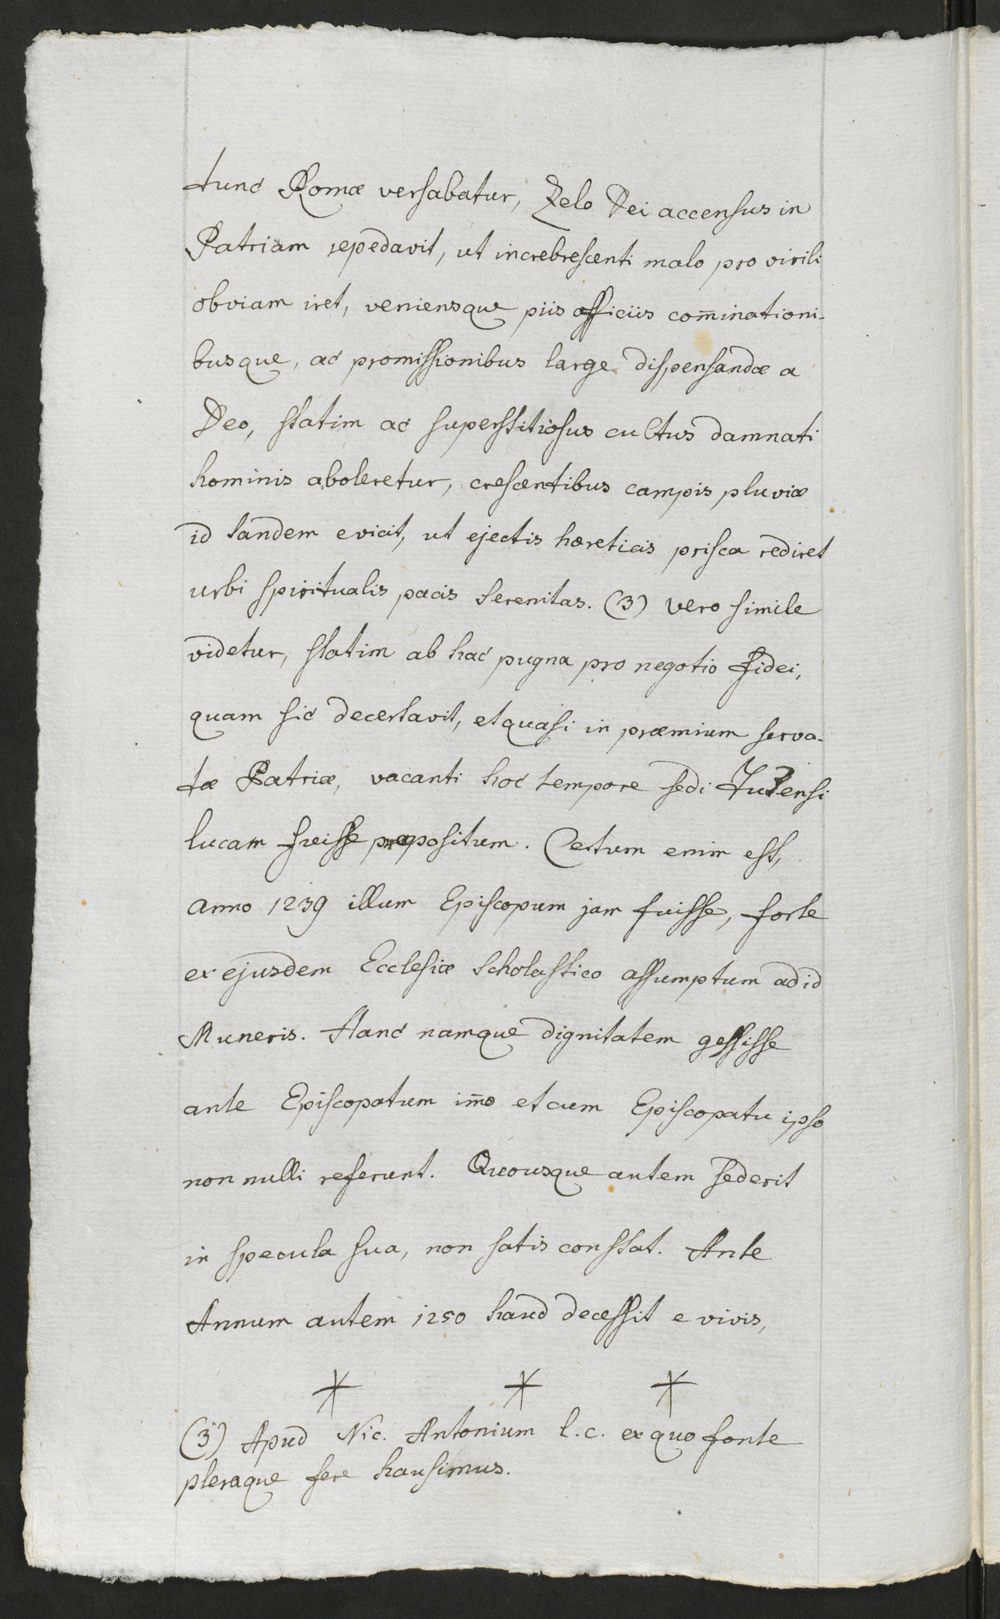 tunc Romæ versabatur, Zelo Dei accensus in
Patriam repedavit, ut increbrescenti malo pro virili
obviam iret, veniensque piis officiis com̄inationi-
busque, ac promissionibus large dispensandæ a
Deo, statim ac superstitiosus cultus damnati
hominis aboleretur, crescentibus campis pluviæ
id tandem evicit, ut ejectis hæreticis prisca rediret
urbi spiritualis pacis serenitas. (3) vero simile
videtur, statim ab hac pugna pro negotio Fidei,
quam sic decertavit, et quasi in præmium serva-
tæ Patriæ, vacanti hoc tempore sedi Tudensi
lucam fuisse præpositum. Certum enim est,
anno 1239 illum Episcopum jam fuisse, forte
ex ejusdem Ecclesiæ scholastico assumptum ad id
Muneris. Hanc namque dignitatem gessisse
ante Episcopatum im̄o et cum Episcopatu ipso
non nulli referunt. Quousque autem sederit
in specula sua, non satis constat. Ante
Annum autem 1250 haud decessit e vivis,
(3) Apud Nic. Antonium l.c. ex quo fonte
pleraque fere hausimus.